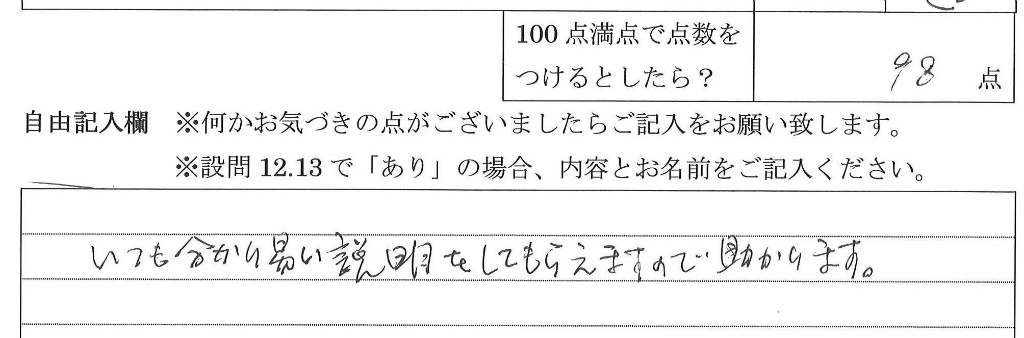 100点満点で点数を
つけるとしたら？
98 点
自由記入欄 ※何かお気づきの点がございましたらご記入をお願い致します。
※設問12.13で「あり」の場合、内容とお名前をご記入ください。
いつも分かり易い説明をしてもらえますので助かります。